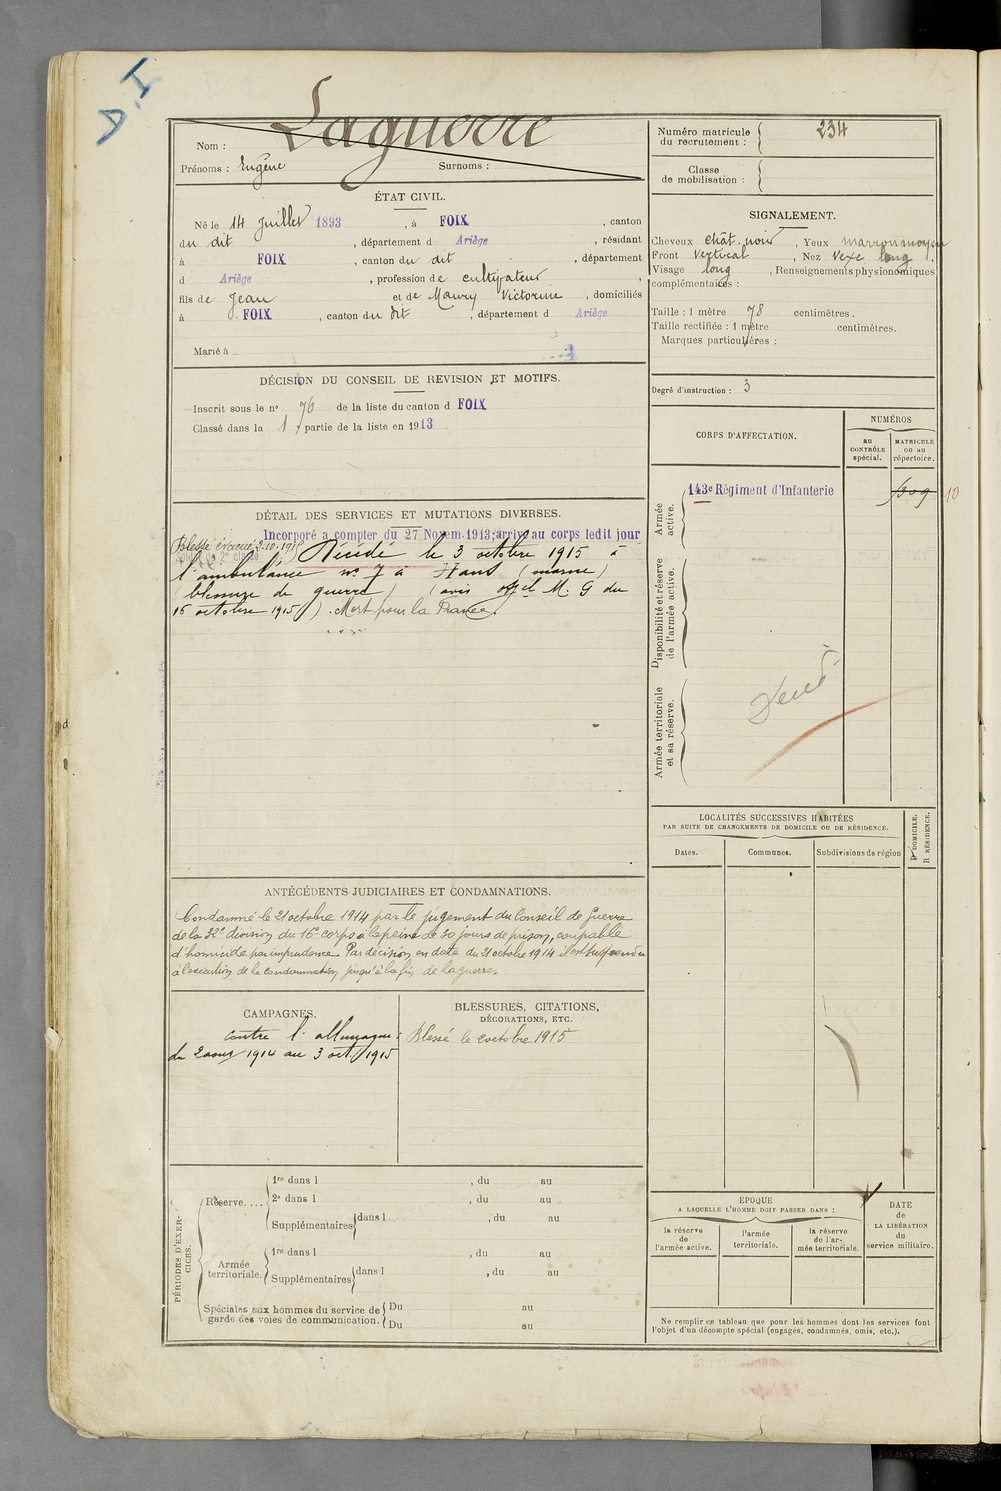 D.I
Laguerre
Nom :
Prénoms : Eugène Surnoms :
ÉTAT CIVIL.
Né le 14 Juillet 1893 , à FOIX , canton
du dit , département d Ariège , résidant
à FOIX , canton du dit , département
d Ariège , profession de cultivateur
fils de Jean et de Maury Victorine , domiciliés
à FOIX , canton du dit , département d Ariège
Marié à
DÉCISION DU CONSEIL DE REVISION ET MOTIFS.
Inscrit sous le nº 76 de la liste du canton d FOIX
Classé dans la 1 partie de la liste en 1913
DÉTAIL DES SERVICES ET MUTATIONS DIVERSES.
Incorporé à compter du 27 Novem. 1913; arrivé au corps ledit jour
Soldat de 2e classe
Blessé évacué 2-10-1915 Décédé le 3 octobre 1915 à
l'ambulance nº 7 à Hans (marne)
(blessure de guerre) (avis offel M. G du
15 octobre 1915). Mort pour la France.
ANTÉCÉDENTS JUDICIAIRES ET CONDAMNATIONS.
Condamné le 21 octobre 1914 par le jugement du Conseil de Guerre
de la 32e division du 16e corps à la peine de 30 jours de prison, coupable
d'homicide par imprudence. Par décision en date du 21 octobre 1914 il est suspendu
à l'exécution de la condamnation jusqu'à la fin de la guerre.
CAMPAGNES.
contre l'allemagne :
du 2 aout 1914 au 3 oct 1915
BLESSURES, CITATIONS,
DÉCORATIONS, ETC.
Blessé le 2 octobre 1915
PÉRIODES D'EXER-
CICES.
Réserve....
1re dans l , du au
2e dans l , du au
Supplémentaires dans l , du au
Armée
territoriale.
1re dans l , du au
Supplémentaires dans l , du au
Spéciales aux hommes du service de
garde des voies de communication.
Du au
Du au
Numéro matricule
du recrutement : 234
Classe
de mobilisation :
SIGNALEMENT.
Cheveux chât. noir , Yeux marron moyen
Front vertical , Nez vexe long
Visage long , Renseignements physionomiques
complémentaires :
Taille : 1 mètre 78 centimètres.
Taille rectifiée : 1 mètre centimètres.
Marques particulières :
Degré d'instruction : 3
CORPS D'AFFECTATION.
NUMÉROS
au
CONTRÔLE
spécial.
MATRICULE
ou au
répertoire.
Armée
active.
143e Régiment d'Infanterie
Disponibilité et réserve
de l'armée active.
Armée territoriale
et sa réserve.
LOCALITÉS SUCCESSIVES HABITÉES
PAR SUITE DE CHANGEMENTS DE DOMICILE OU DE RÉSIDENCE.
Dates.
Communes.
Subdivisions de région
D DOMICILE.
R RÉSIDENCE.
EPOQUE
A LAQUELLE L'HOMME DOIT PASSER DANS :
la réserve
de
l'armée active.
l'armée
territoriale.
la réserve
de l'ar-
mée territoriale.
DATE
de
LA LIBÉRATION
du
service militaire.
Ne remplir ce tableau que pour les hommes dont les services font
l'objet d'un décompte spécial (engagés, condamnés, omis, etc.).